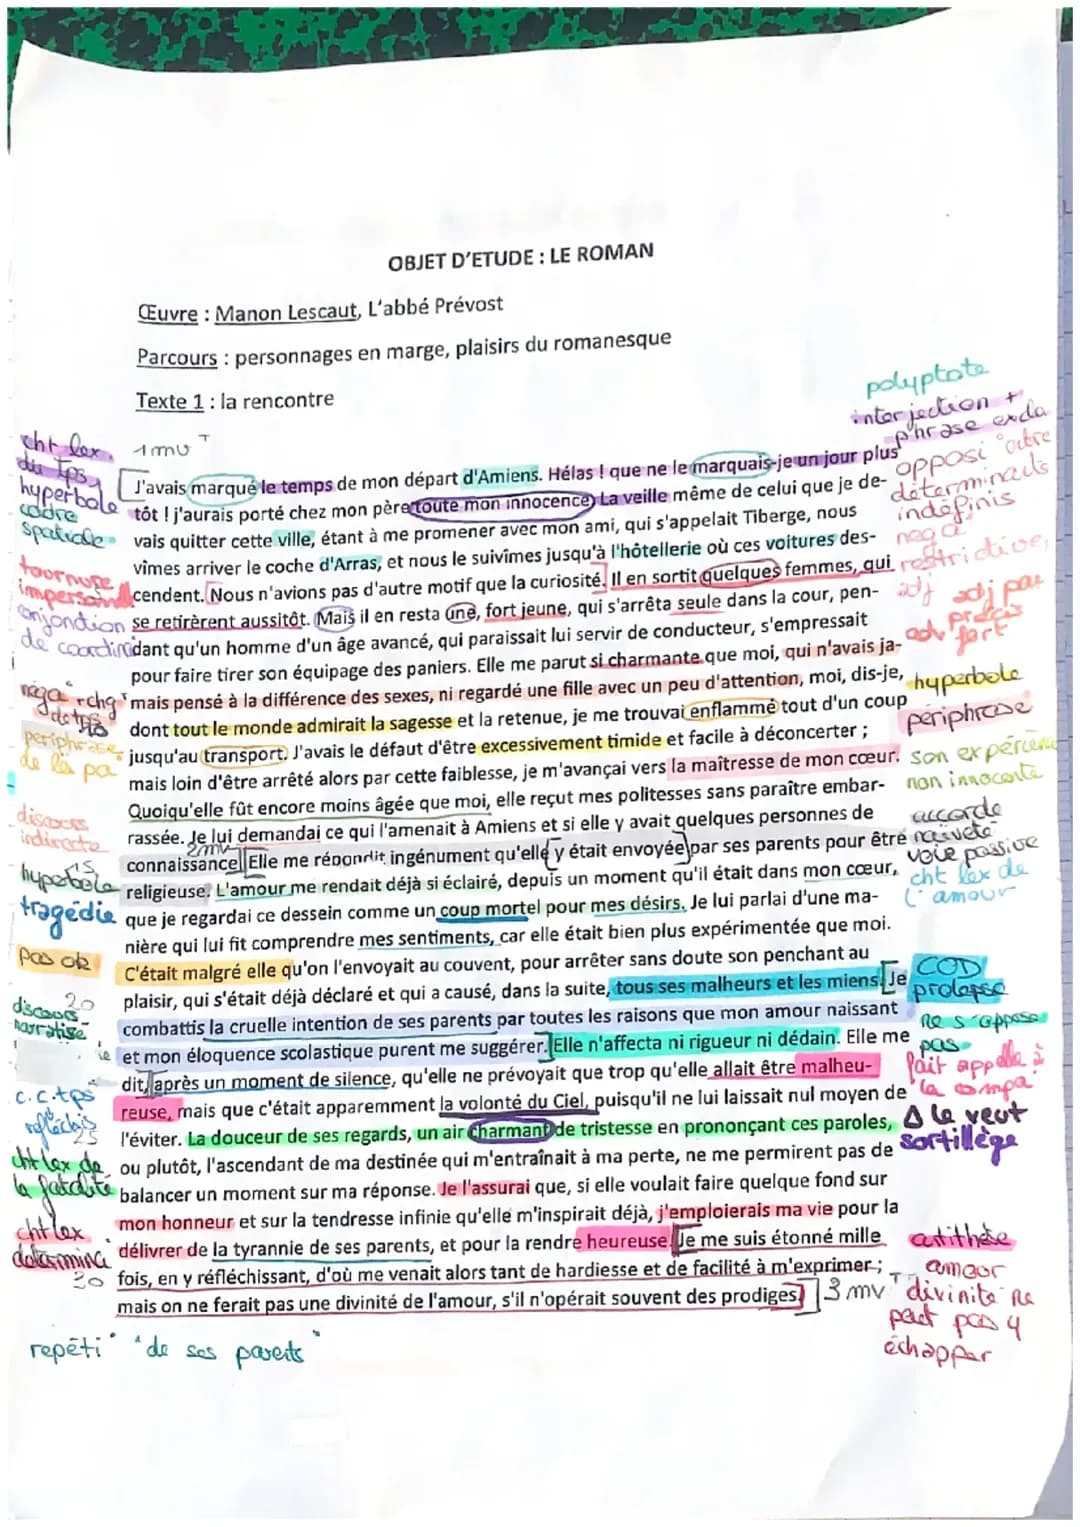 OBJET D'ETUDE : LE ROMAN
Œuvre : Manon Lescaut, L'abbé Prévost
Parcours : personnages en marge, plaisirs du romanesque
Texte 1 : la rencontre
polyptote
interjection +
phrase excla
cht lex.
du tps,
hyperbole
cadre
spatiale
1 mv T
opposi° entre
déterminants
indéfinis
J'avais marqué le temps de mon départ d'Amiens. Hélas ! que ne le marquais-je un jour plus
tôt ! j'aurais porté chez mon père toute mon innocence. La veille même de celui que je de-
vais quitter cette ville, étant à me promener avec mon ami, qui s'appelait Tiberge, nous
vîmes arriver le coche d'Arras, et nous le suivîmes jusqu'à l'hôtellerie où ces voitures des-
cendent. Nous n'avions pas d'autre motif que la curiosité. Il en sortit quelques femmes, qui
se retirèrent aussitôt. Mais il en resta une, fort jeune, qui s'arrêta seule dans la cour, pen-
dant qu'un homme d'un âge avancé, qui paraissait lui servir de conducteur, s'empressait
pour faire tirer son équipage des paniers. Elle me parut si charmante que moi, qui n'avais ja-
mais pensé à la différence des sexes, ni regardé une fille avec un peu d'attention, moi, dis-je,
dont tout le monde admirait la sagesse et la retenue, je me trouvai enflammé tout d'un coup
jusqu'au transport. J'avais le défaut d'être excessivement timide et facile à déconcerter ;
mais loin d'être arrêté alors par cette faiblesse, je m'avançai vers la maîtresse de mon cœur.
Quoiqu'elle fût encore moins âgée que moi, elle reçut mes politesses sans paraître embar-
rassée. Je lui demandai ce qui l'amenait à Amiens et si elle y avait quelques personnes de
2mv
connaissance. Elle me répondit ingénument qu'elle y était envoyée par ses parents pour être
religieuse. L'amour me rendait déjà si éclairé, depuis un moment qu'il était dans mon cœur,
que je regardai ce dessein comme un coup mortel pour mes désirs. Je lui parlai d'une ma-
nière qui lui fit comprendre mes sentiments, car elle était bien plus expérimentée que moi.
C'était malgré elle qu'on l'envoyait au couvent, pour arrêter sans doute son penchant au
plaisir, qui s'était déjà déclaré et qui a causé, dans la suite, tous ses malheurs et les miens. Je
combattis la cruelle intention de ses parents par toutes les raisons que mon amour naissant
et mon éloquence scolastique purent me suggérer. Elle n'affecta ni rigueur ni dédain. Elle me
dit, après un moment de silence, qu'elle ne prévoyait que trop qu'elle allait être malheu-
reuse, mais que c'était apparemment la volonté du Ciel, puisqu'il ne lui laissait nul moyen de
l'éviter. La douceur de ses regards, un air charmant de tristesse en prononçant ces paroles,
ou plutôt, l'ascendant de ma destinée qui m'entraînait à ma perte, ne me permirent pas de
balancer un moment sur ma réponse. Je l'assurai que, si elle voulait faire quelque fond sur
mon honneur et sur la tendresse infinie qu'elle m'inspirait déjà, j'emploierais ma vie pour la
délivrer de la tyrannie de ses parents, et pour la rendre heureuse. Je me suis étonné mille
fois, en y réfléchissant, d'où me venait alors tant de hardiesse et de facilité à m'exprimer ;
mais on ne ferait pas une divinité de l'amour, s'il n'opérait souvent des prodiges. 3 mv T
tournure
conjonction
de coordina
néga° + chg
périphrase
de la pa
discours
indirecte
15
hyperbole
tragédie
pas ok
20
discours
narratisé
c.c.tps
réfléchis
25
cht lex de
la fatalité
cht lex
30
néga°
restrictive,
adj
adj par
adv
fort
hyperbole
périphrase
son expérien
non innocente
accorde
naïveté
voie passive
cht lex de
l'amour
COD
prolepse
ne s'oppose
pas
fait appelle à
la compa
Δ le veut
sortilège
antithèse
amour
divinité ne
peut pas y
échapper
repéti° "de ses parents"